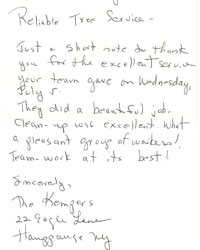 Reliable Tree Service -
Just a short note to thank
you for the excellent service
your team gave on Wednesday,
July 5.
They did a beautiful job.
Clean-up was excellent. What
a pleasant group of workers!
Team-work at its best!
Sincerely,
The Kempers
22 Eagle Lane
Hauppauge NY